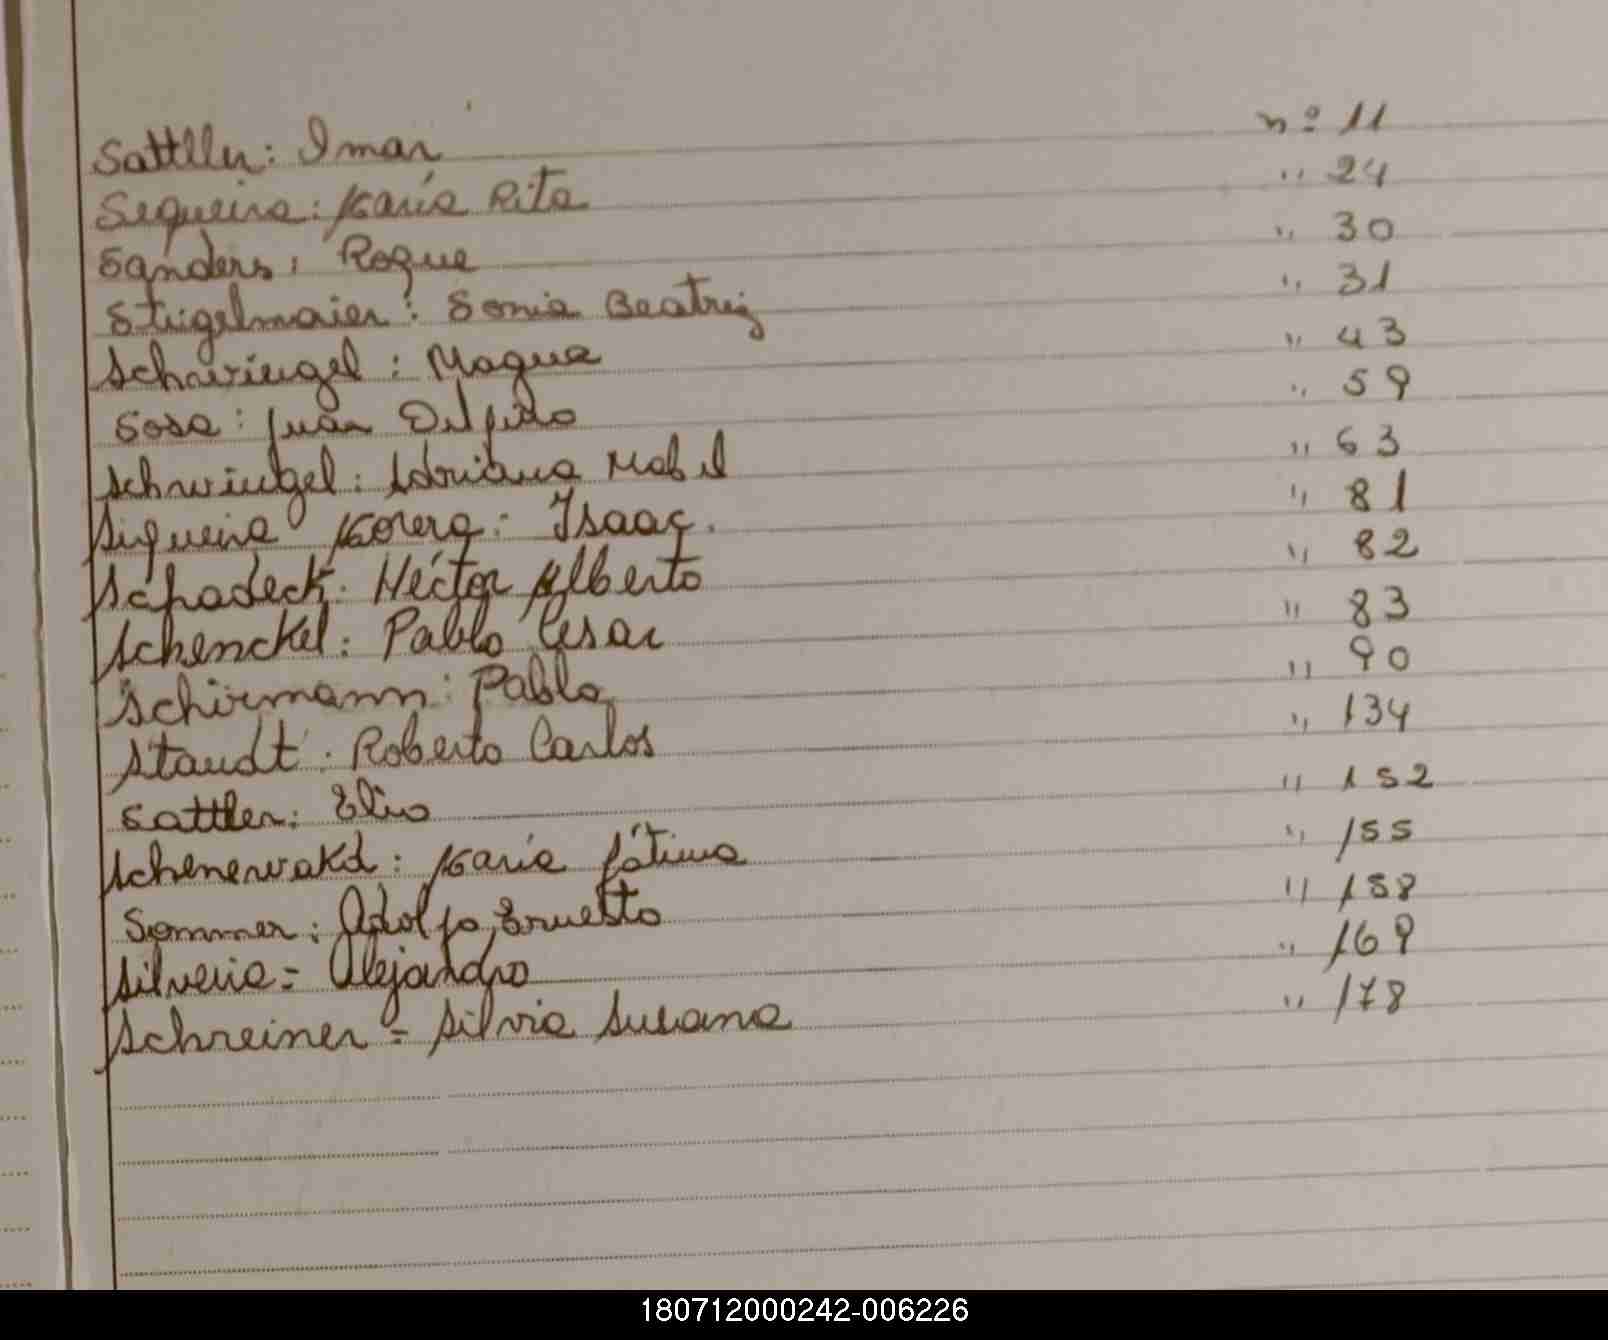 Sattller: Imar nº 11
Sequeira: María Rita " 24
Sanders: Roque " 30
Stigelmaier: Sonia Beatriz " 31
Schwiengel: Magna " 43
Sosa: Juan Delfino " 59
Schwiengel: Adriana Mabel " 63
Siqueira Morera: Isaac. " 81
Schadeck: Héctor Alberto " 82
Schenckel: Pablo Cesar " 83
Schirmann: Pablo " 90
Staudt: Roberto Carlos " 134
Sattler: Elio " 152
María Fátima " 155
Sommer: Adolfo Ernesto " 158
Silveria= Alejandro " 169
Schreiner= Silvia Susana " 178
180712000242-006226